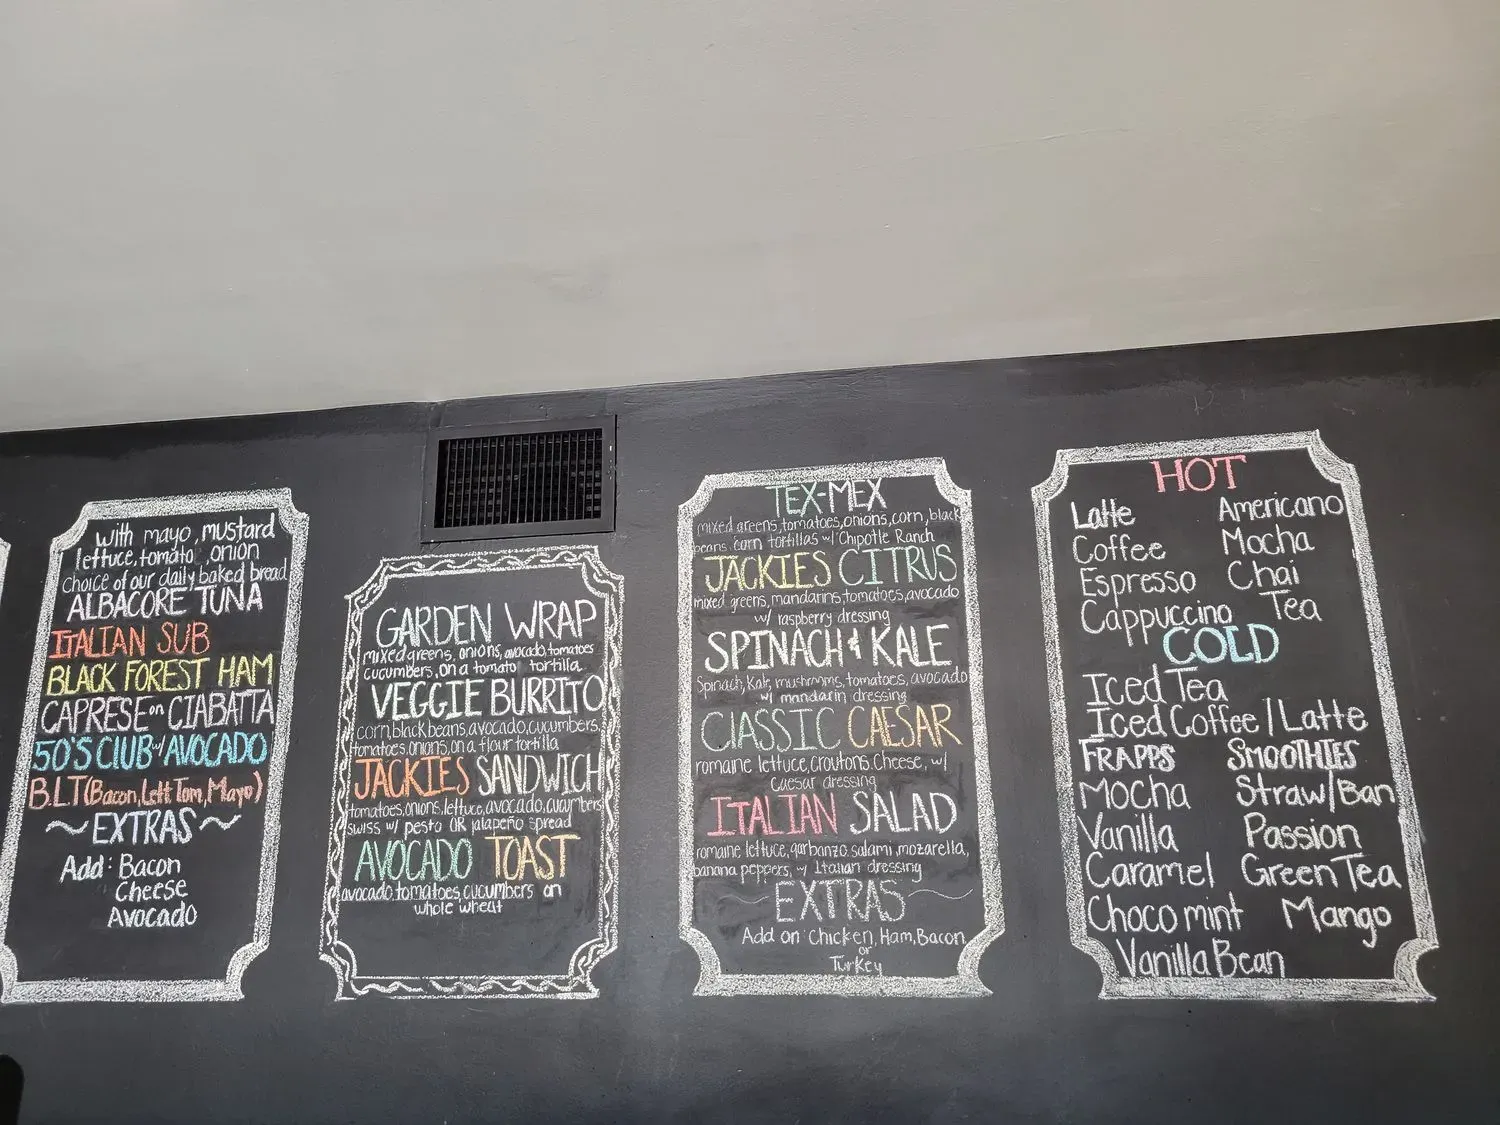 with mayo, mustard
lettuce, tomato, onion
choice of our daily baked bread
ALBACORE TUNA
ITALIAN SUB
BLACK FOREST HAM
CAPRESE on CIABATTA
50'S CLUB w/ AVOCADO
B.L.T (Bacon, Lett Tom, Mayo)
~ EXTRAS ~
Add: Bacon
Cheese
Avocado
GARDEN WRAP
mixed greens, onions, avocado, tomatoes
cucumbers, on a tomato tortilla
VEGGIE BURRITO
corn, black beans, avocado, cucumbers,
tomatoes, onions, on a flour tortilla
JACKIES SANDWICH
tomatoes, onions, lettuce, avocado, cucumbers
swiss w/ pesto OR jalapeño spread
AVOCADO TOAST
avocado, tomatoes, cucumbers on
whole wheat
TEX-MEX
mixed greens, tomatoes, onions, corn, black
beans, corn tortillas w/ Chipotle Ranch
JACKIES CITRUS
mixed greens, mandarins, tomatoes, avocado
w/ raspberry dressing
SPINACH & KALE
Spinach, Kale, mushrooms, tomatoes, avocado
w/ mandarin dressing
CLASSIC CAESAR
romaine lettuce, croutons, cheese, w/
Caesar dressing
ITALIAN SALAD
romaine lettuce, garbanzo, salami, mozarella,
banana peppers, w/ Italian dressing
EXTRAS
Add on: Chicken, Ham, Bacon
or
Turkey
HOT
Latte Americano
Coffee Mocha
Espresso Chai
Cappuccino Tea
COLD
Iced Tea
Iced Coffee / Latte
FRAPPS SMOOTHIES
Mocha Straw/Ban
Vanilla Passion
Caramel Green Tea
Choco mint Mango
Vanilla Bean